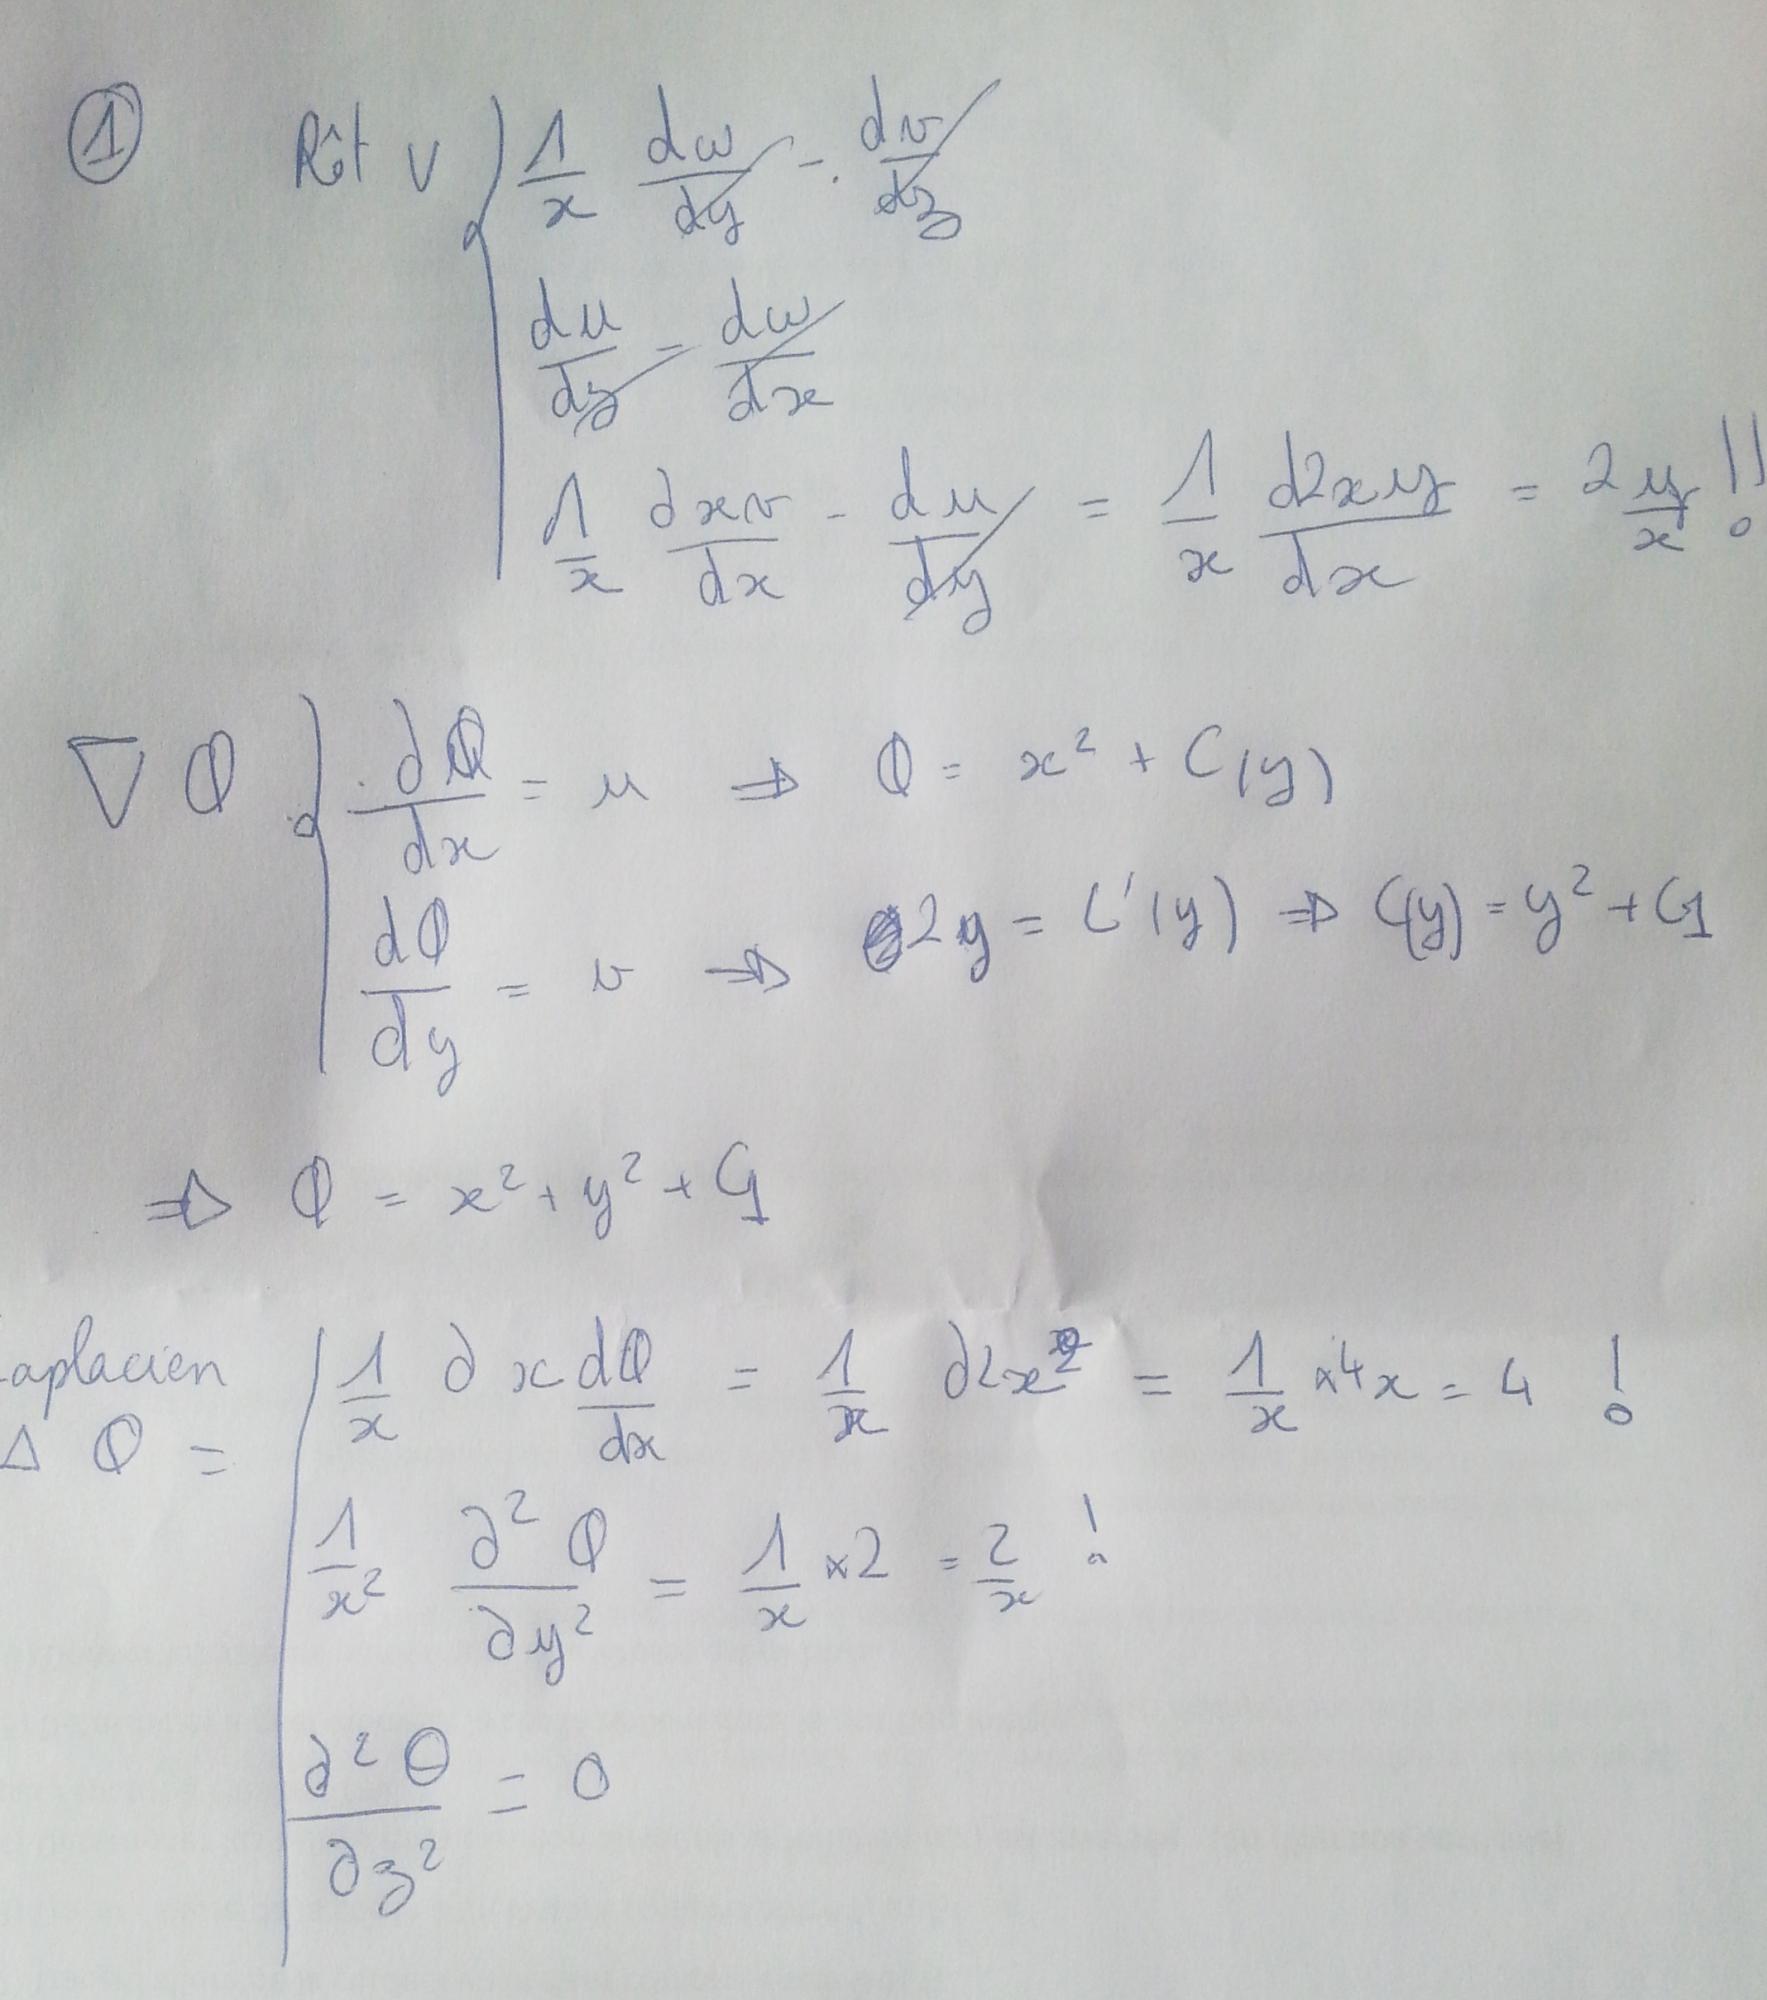 ① Rôt v { 1/x dw/dy - dv/dz
du/dz - dw/dx
1/x ∂xv/dx - du/dy = 1/x d2xy/dx = 2y/x !!
∇ Φ { ∂Φ/dx = u ⇒ Φ = x² + C(y)
dΦ/dy = v ⇒ 2y = C'(y) ⇒ C(y) = y² + C1
⇒ Φ = x² + y² + C1
Laplacien
Δ Φ = | 1/x ∂ x dΦ/dx = 1/x ∂2x² = 1/x × 4x = 4 !
1/x² ∂²Φ/∂y² = 1/x × 2 = 2/x !
∂²Θ/∂z² = 0